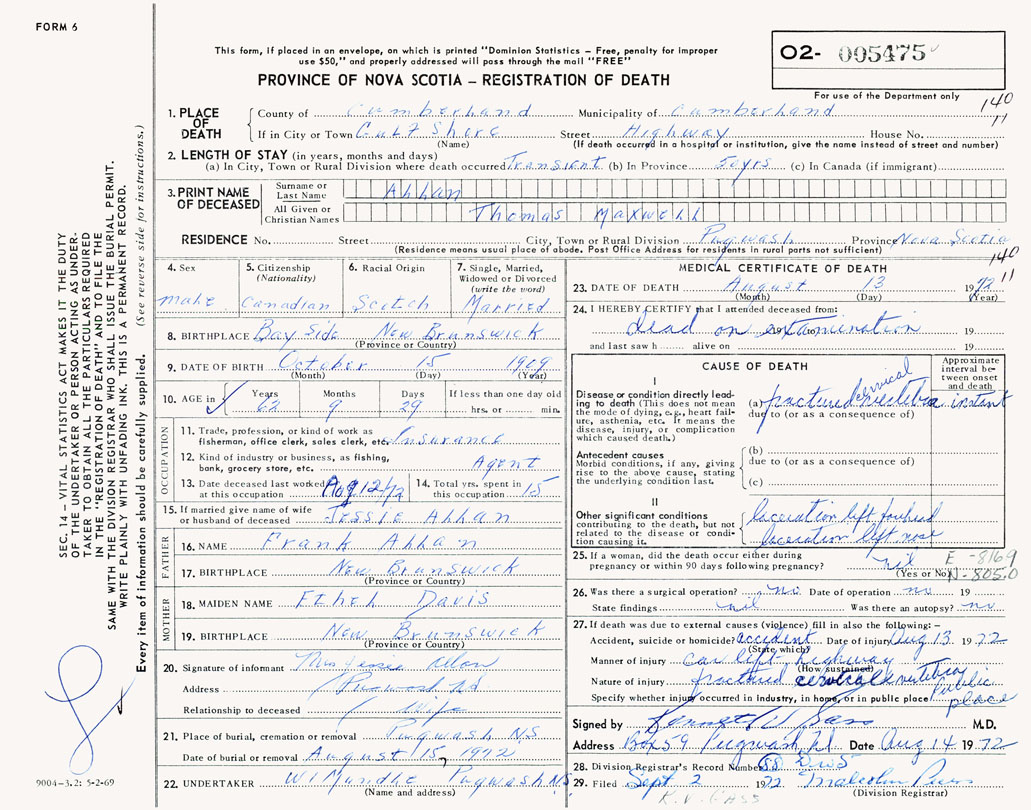 FORM 6
This form, if placed in an envelope, on which is printed "Dominion Statistics – Free, penalty for improper
use $50," and properly addressed will pass through the mail "FREE"
PROVINCE OF NOVA SCOTIA – REGISTRATION OF DEATH
O2- 005475
For use of the Department only
140
11
1. PLACE OF DEATH
County of Cumberland Municipality of Cumberland
If in City or Town Gulf Shore Street Highway House No.
(Name) (If death occurred in a hospital or institution, give the name instead of street and number)
2. LENGTH OF STAY (in years, months and days)
(a) In City, Town or Rural Division where death occurred Transient (b) In Province 50yrs (c) In Canada (if immigrant)
3. PRINT NAME OF DECEASED
Surname or Last Name Allan
All Given or Christian Names Thomas Maxwell
RESIDENCE No. Street City, Town or Rural Division Pugwash Province Nova Scotia
(Residence means usual place of abode. Post Office Address for residents in rural parts not sufficient)
140
11
4. Sex
male
5. Citizenship
(Nationality)
Canadian
6. Racial Origin
Scotch
7. Single, Married,
Widowed or Divorced
(write the word)
Married
8. BIRTHPLACE Bay Side New Brunswick
(Province or Country)
9. DATE OF BIRTH October 15 1909
(Month) (Day) (Year)
10. AGE in Years Months Days If less than one day old
62 9 29 hrs. or min.
OCCUPATION
11. Trade, profession, or kind of work as
fisherman, office clerk, sales clerk, etc. Insurance
12. Kind of industry or business, as fishing,
bank, grocery store, etc. Agent
13. Date deceased last worked
at this occupation Aug 12/72
14. Total yrs. spent in
this occupation 15
15. If married give name of wife
or husband of deceased Jessie Allan
FATHER
16. NAME Frank Allan
17. BIRTHPLACE New Brunswick
(Province or Country)
MOTHER
18. MAIDEN NAME Ethel Davis
19. BIRTHPLACE New Brunswick
(Province or Country)
20. Signature of informant Mrs Jessie Allan
Address Pugwash, NS
Relationship to deceased wife
21. Place of burial, cremation or removal Pugwash N.S
Date of burial or removal August 15, 1972
22. UNDERTAKER Pugwash N.S.
(Name and address)
MEDICAL CERTIFICATE OF DEATH
23. DATE OF DEATH August 13 1972
(Month) (Day) (Year)
24. I HEREBY CERTIFY that I attended deceased from:
dead on examination 19
and last saw h alive on 19
CAUSE OF DEATH
Approximate interval between onset and death
I
Disease or condition directly leading to death (This does not mean
the mode of dying, e.g., heart failure, asthenia, etc. it means the
disease, injury, or complication
which caused death.)
(a) fractured cervical vertebra instant
due to (or as a consequence of)
Antecedent causes
Morbid conditions, if any, giving
rise to the above cause, stating
the underlying condition last.
(b)
due to (or as a consequence of)
(c)
II
Other significant conditions
contributing to the death, but not
related to the disease or condition causing it.
laceration left forehead
laceration left nose
25. If a woman, did the death occur either during
pregnancy or within 90 days following pregnancy? nil
(Yes or No)
E -8169
N-805.0
26. Was there a surgical operation? no Date of operation no 19
State findings nil Was there an autopsy? no
27. If death was due to external causes (violence) fill in also the following:–
Accident, suicide or homicide? accident Date of injury Aug 13 1972
(State which)
Manner of injury car left highway
(How sustained)
Nature of injury fractured cervical vertebra
Specify whether injury occurred in industry, in home, or in public place Public place
Signed by M.D.
Address Box 59 Pugwash Date Aug 14 1972
28. Division Registrar's Record Number
29. Filed Sept 2 1972 Malcolm
(Division Registrar)
SEC. 14 – VITAL STATISTICS ACT MAKES IT THE DUTY
OF THE UNDERTAKER OR PERSON ACTING AS UNDER-
TAKER TO OBTAIN ALL THE PARTICULARS REQUIRED
IN THE "REGISTRATION OF DEATH" AND TO FILE THE
SAME WITH THE DIVISION REGISTRAR WHO SHALL ISSUE THE BURIAL PERMIT.
WRITE PLAINLY WITH UNFADING INK. THIS IS A PERMANENT RECORD.
Every item of information should be carefully supplied. (See reverse side for instructions.)
9004–3.2: 5-2-69